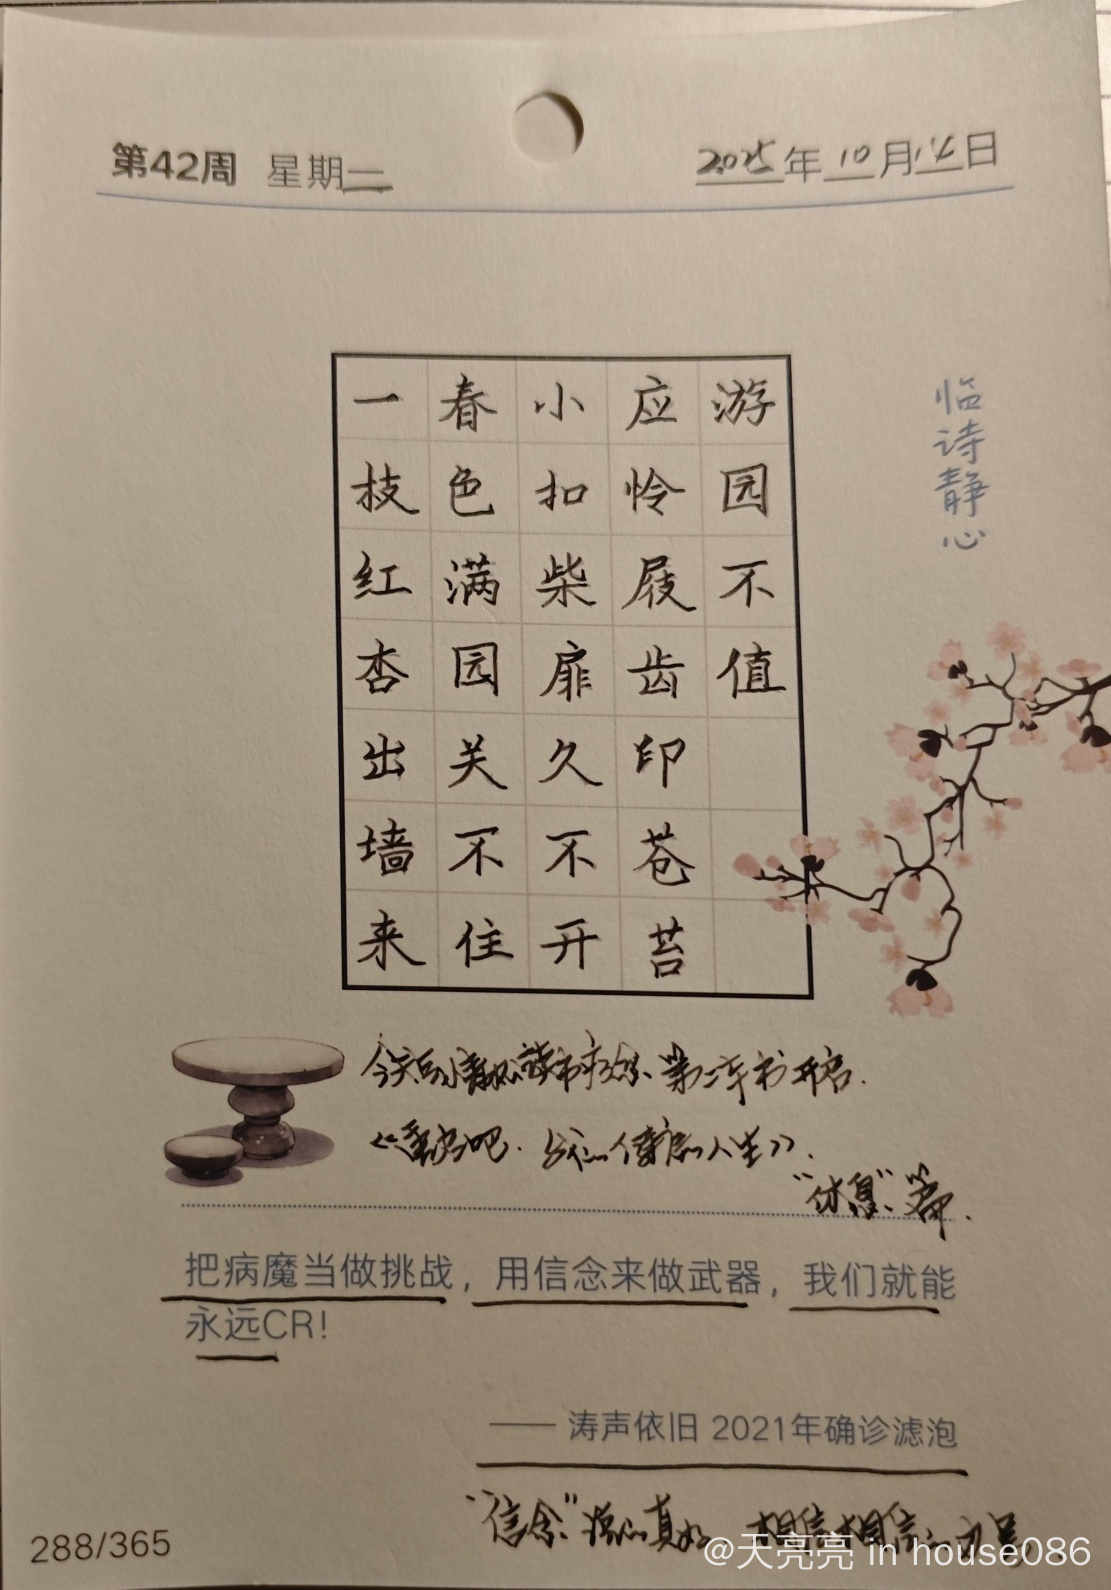 第42周 星期二
2025年10月14日
临诗静心
游园不值
应怜屐齿印苍苔
小扣柴扉久不开
春色满园关不住
一技红杏出墙来
今天 读书 第二本书开启.
《重启吧. 人生》.
"休息"篇.
把病魔当做挑战，用信念来做武器，我们就能
永远CR！
—— 涛声依旧 2021年确诊滤泡
"信念" 真好 相信相信
288/365
@天亮亮 in house086